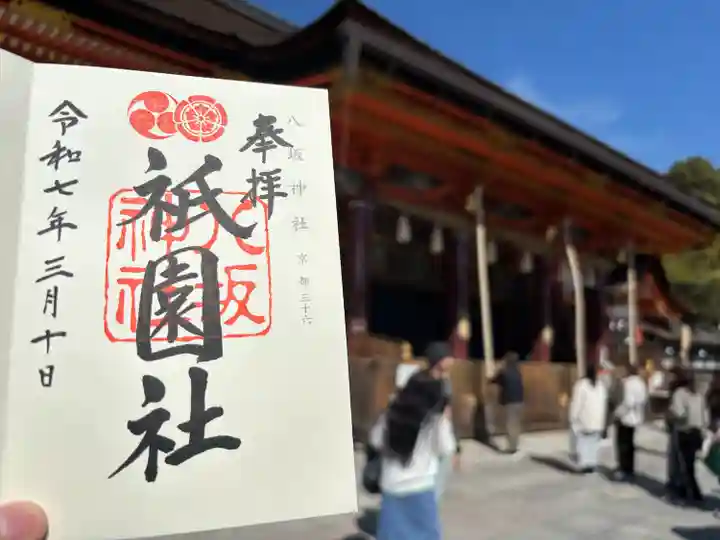 八坂神社 京都三十六
奉拝
祇園社
八坂
神社
令和七年三月十日